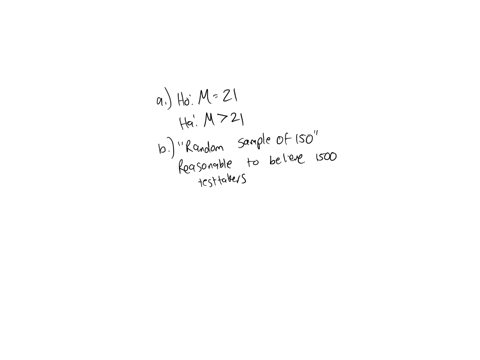 a.) Ho: M = 21
Ha: M > 21
b.) "Random sample of 150"
Reasonable to beleve 1500
testtakers